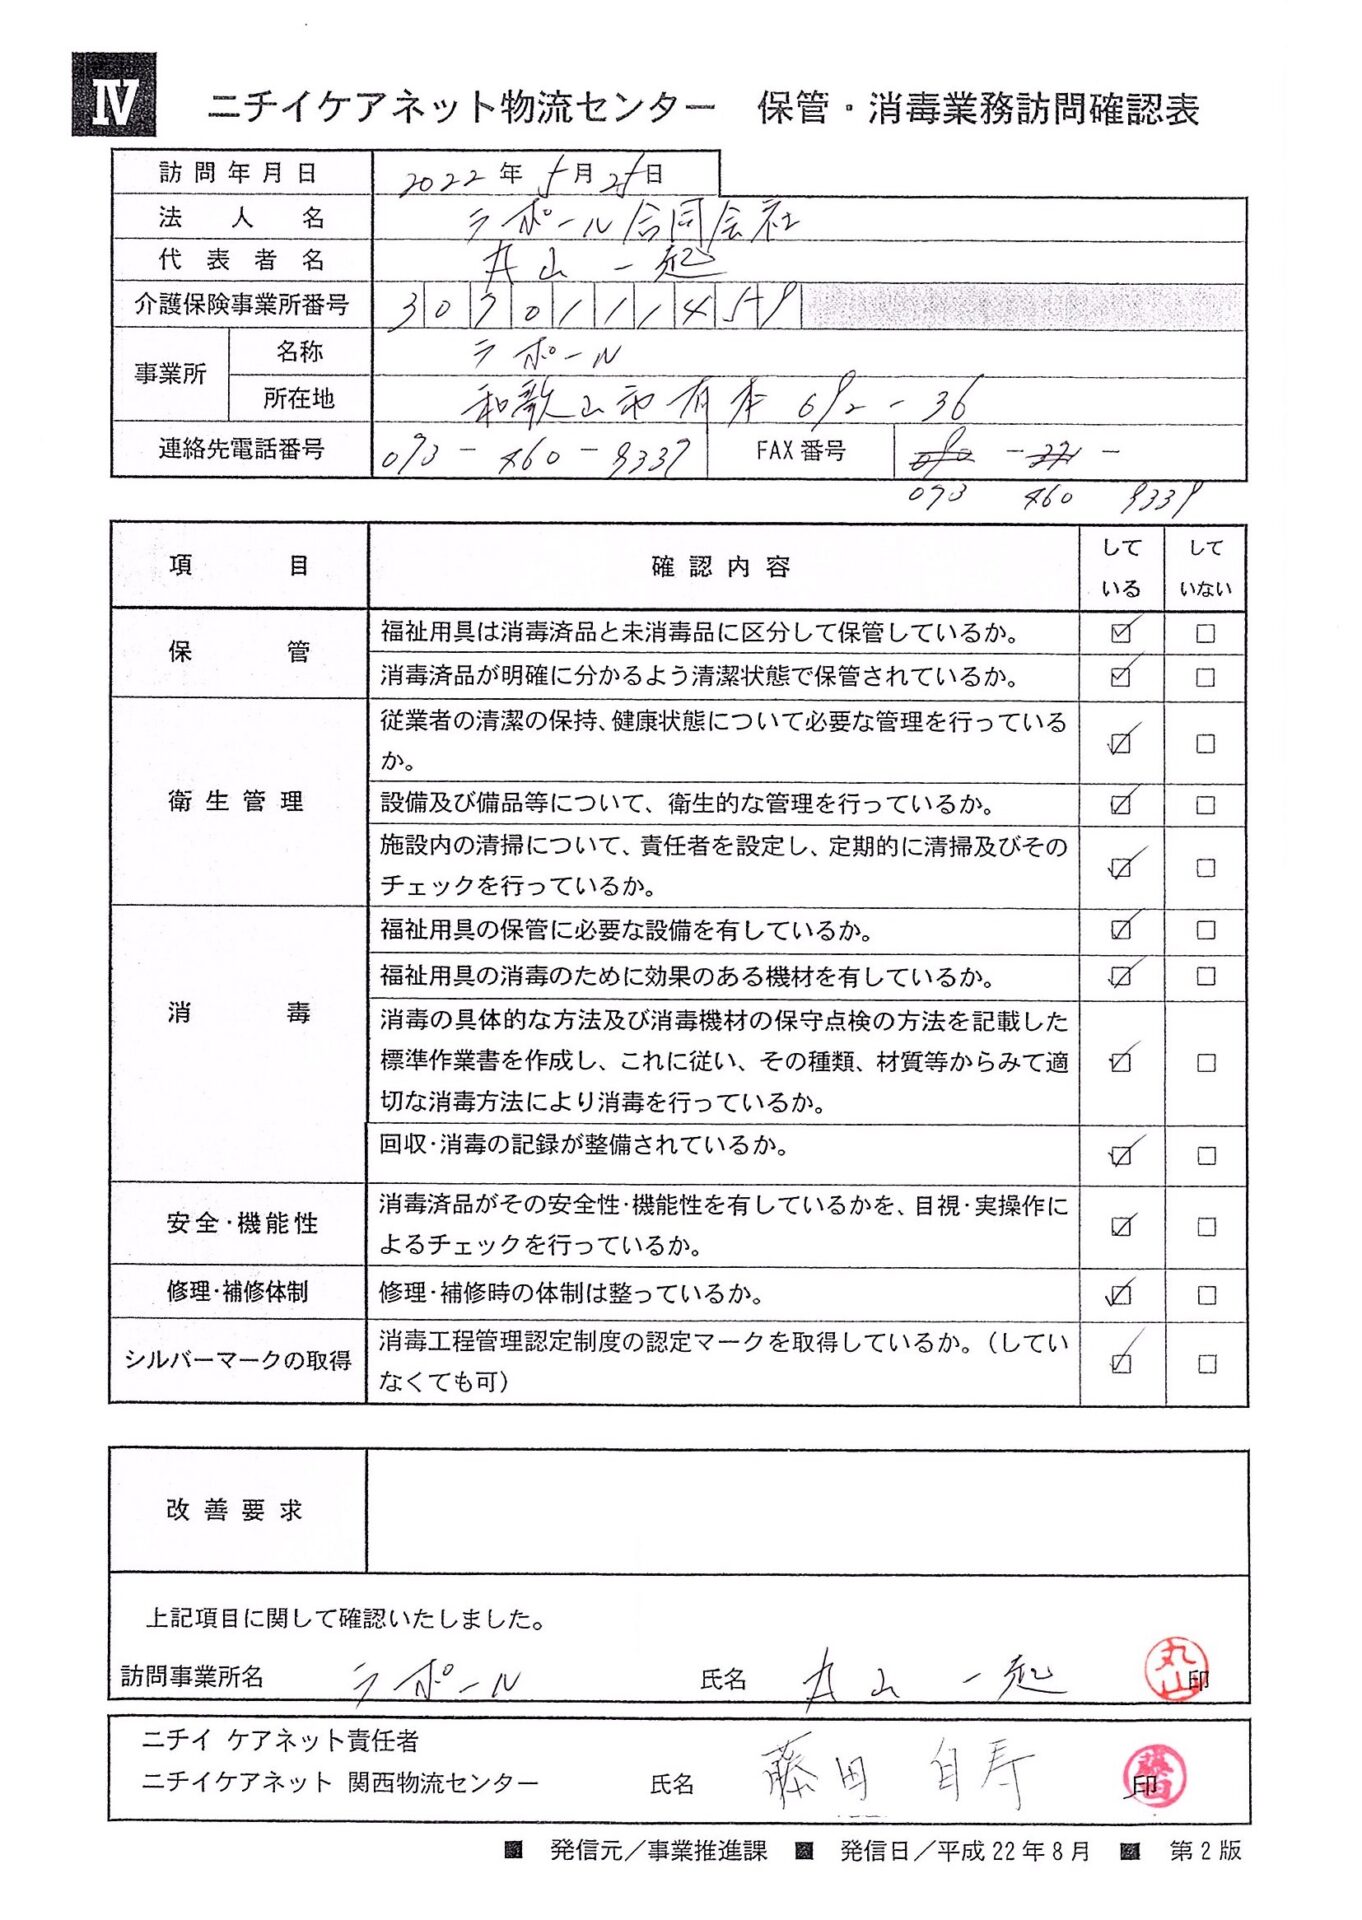 IV
ニチイケアネット物流センター 保管・消毒業務訪問確認表
訪問年月日 2022年5月25日
法人名 ラポール合同会社
代表者名 丸山一起
介護保険事業所番号 3070111459
事業所 名称 ラポール
所在地 和歌山市有本692-36
連絡先電話番号 073-460-9337 FAX番号 - -
073 460 9339
項目 確認内容 している していない
保管 福祉用具は消毒済品と未消毒品に区分して保管しているか。 ☑ □
消毒済品が明確に分かるよう清潔状態で保管されているか。 ☑ □
衛生管理 従業者の清潔の保持、健康状態について必要な管理を行っている
か。 ☑ □
設備及び備品等について、衛生的な管理を行っているか。 ☑ □
施設内の清掃について、責任者を設定し、定期的に清掃及びその
チェックを行っているか。 ☑ □
消毒 福祉用具の保管に必要な設備を有しているか。 ☑ □
福祉用具の消毒のために効果のある機材を有しているか。 ☑ □
消毒の具体的な方法及び消毒機材の保守点検の方法を記載した
標準作業書を作成し、これに従い、その種類、材質等からみて適
切な消毒方法により消毒を行っているか。 ☑ □
回収・消毒の記録が整備されているか。 ☑ □
安全・機能性 消毒済品がその安全性・機能性を有しているかを、目視・実操作に
よるチェックを行っているか。 ☑ □
修理・補修体制 修理・補修時の体制は整っているか。 ☑ □
シルバーマークの取得 消毒工程管理認定制度の認定マークを取得しているか。（してい
なくても可） ☑ □
改善要求
上記項目に関して確認いたしました。
訪問事業所名 ラポール 氏名 丸山一起 印 丸山
ニチイケアネット責任者
ニチイケアネット 関西物流センター 氏名 藤田 自寿 印 藤田
■ 発信元／事業推進課 ■ 発信日／平成22年8月 ■ 第2版